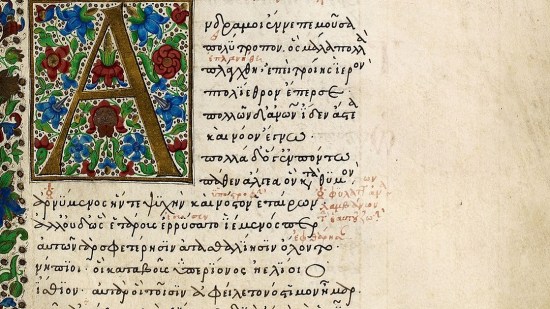 Ἀ
νδρα μοι ἔννεπε μοῦσα
πολύτροπον. ὃς μάλα πολλὰ
ἐπλανήθη
πλάγχθη· ἐπεὶ τροίης ἱερὸν
πτολίεθρον ἔπερσε·
πολλῶν δ' ἀνων ἴδεν ἄστεα
καὶ νόον ἔγνω.
πολλὰ δ' ὅγ' ἐν πόντω
πάθεν ἄλγεα ὃν κατὰ θυμὸν
ἀρνύμενος ἥν τε ψυχὴν καὶ νόστον ἑταίρων
ἀλλ' οὐδ' ὣς ἑτάρους ἐρρύσατο ἱέμενός περ
αὐτῶν γὰρ σφετέρησιν ἀτασθαλίησιν ὄλοντο
νήπιοι· οἳ κατὰ βοῦς ὑπερίονος ἠελίοιο
ἤσθιον· αὐτὰρ ὁ τοῖσιν ἀφείλετο νόστιμον ἦμαρ.